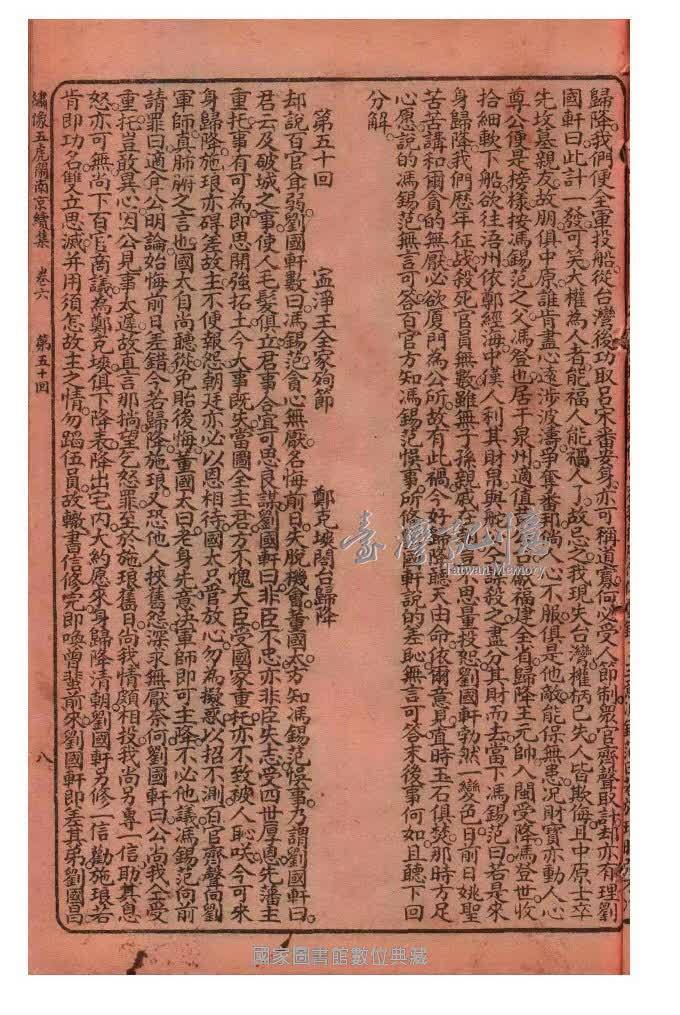 歸降我們便全軍投船從台灣後功取呂宋番安身亦可稱道寡何必受人節制眾官齊聲取計却亦有理劉
國軒曰此計一發可笑大權為人者能福人能禍人了故忌之我現失台灣權柄已失人皆欺侮且中原士卒
先坟墓親友故朋俱中原誰肯盡心遠涉波濤爭奪番邦倘人心不服俱是他敵能保無患况財寶亦動人心
尊公便是榜樣按馮錫范之父馮登也居于泉州適值
福建全省歸降主元帥入閩受降馮登世收
拾細軟下船欲往浯州依鄭經海中漢人利其財帛與
殺之盡分其財而去當下馮錫范曰若是來
身歸降我們歷年征战殺死官員無數雖無丁孫親戚在
思量投恕劉國軒勃然一變色曰前日姚聖
苦苦講和爾貪的無厭必欲厦門為公所故有此禍今好歸降聽天由命依爾意見直時玉石俱焚那時方足
心愿說的馮錫范無言可答百官方知馮錫范悞事所
國軒說的羞恥無言可答末後事何如且聽下回
分解
第五十回 寍淨王全家殉節 鄭克塽閤台歸降
却說百官耳弱劉國軒數曰馮錫范貪心無厭名悔前日失脫機會董國太方知馮錫范悞事乃謂劉國軒曰
君云及破城之事使人毛髮俱立君事合宜可思良謀劉國軒曰非臣不忠亦非臣失志受四世厚恩先藩主
重托事有可為即思開強拓土今大事既失當圖全主君方不愧大臣受國家重托亦不致破人恥咲今可來
身歸降施琅亦碍差故主不便報怨朝廷亦必以恩相待國太只管放心勿為擬惑以招不測百官齊聲向劉
軍師真肺腑之言也國太自尚聽從免貽後悔董國太曰老身先意决軍師即可主降不必他議馮錫范向前
請罪曰適食公明論始悔前日差錯今若歸降施琅又恐他人挾舊怨深求無厭奈何劉國軒曰公尚我全受
重托豈敢異心因公見事太遲故直言那揣望乞恕罪至於施琅舊日尚我情頗相投我尚另專一信助其息
怒亦可無尚下百官商議為鄭克塽俱下降表降出宅内大約愿來身歸降清朝劉國軒另修一信勸施琅若
肯即功名雙立思滅并用須怎故主之情勿蹈伍員故轍書信修完即喚曾蜚前來劉國軒即差其弟劉國昌
繡像五虎鬧南京續集 卷六 第五十回 八
臺灣記憶
Taiwan Memory
國家圖書館數位典藏